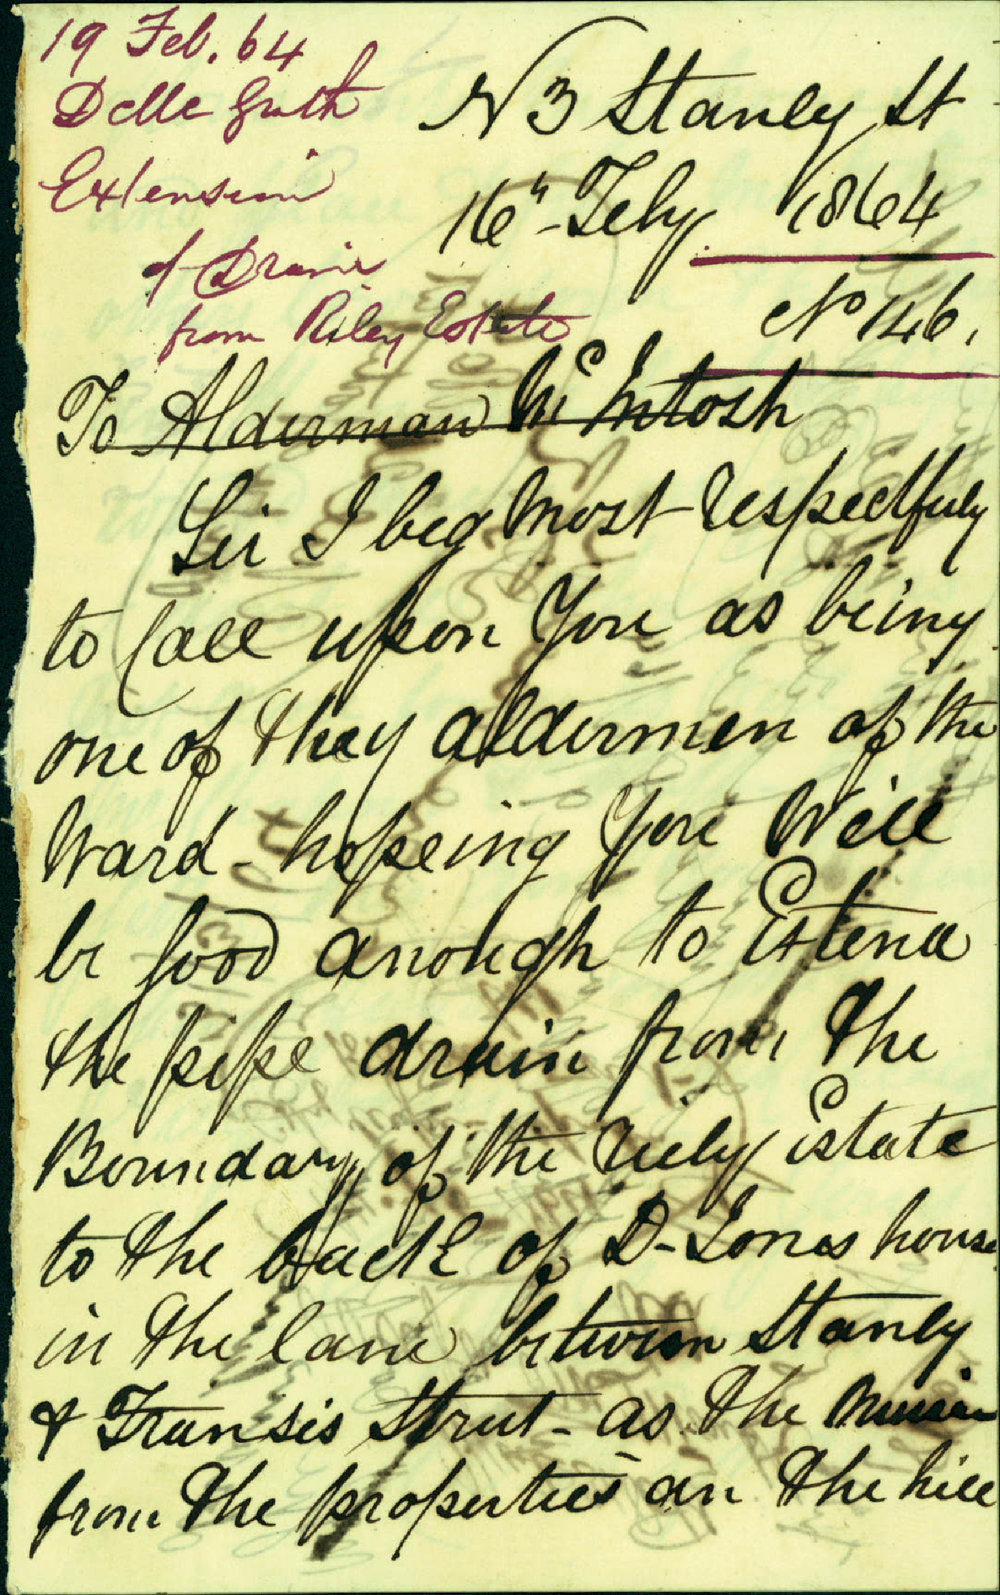 19 Feb. 64
Delle Gruth
Extension
of Drain
from Riley Estate
N 3 Stanley St
16" - Feby 1864
No 146.
To Alderman McIntosh
Sir I beg Most Respectfuly
to Call upon You as being
one of they aldermen of the
Ward - hopeing You Will
be Good anough to Extend
the pipe drain from the
Boundary of the Riely Estate
to the back of D - Jones house
in the lane between Stanley
& Fransis Street - as the
from the properties on the hill